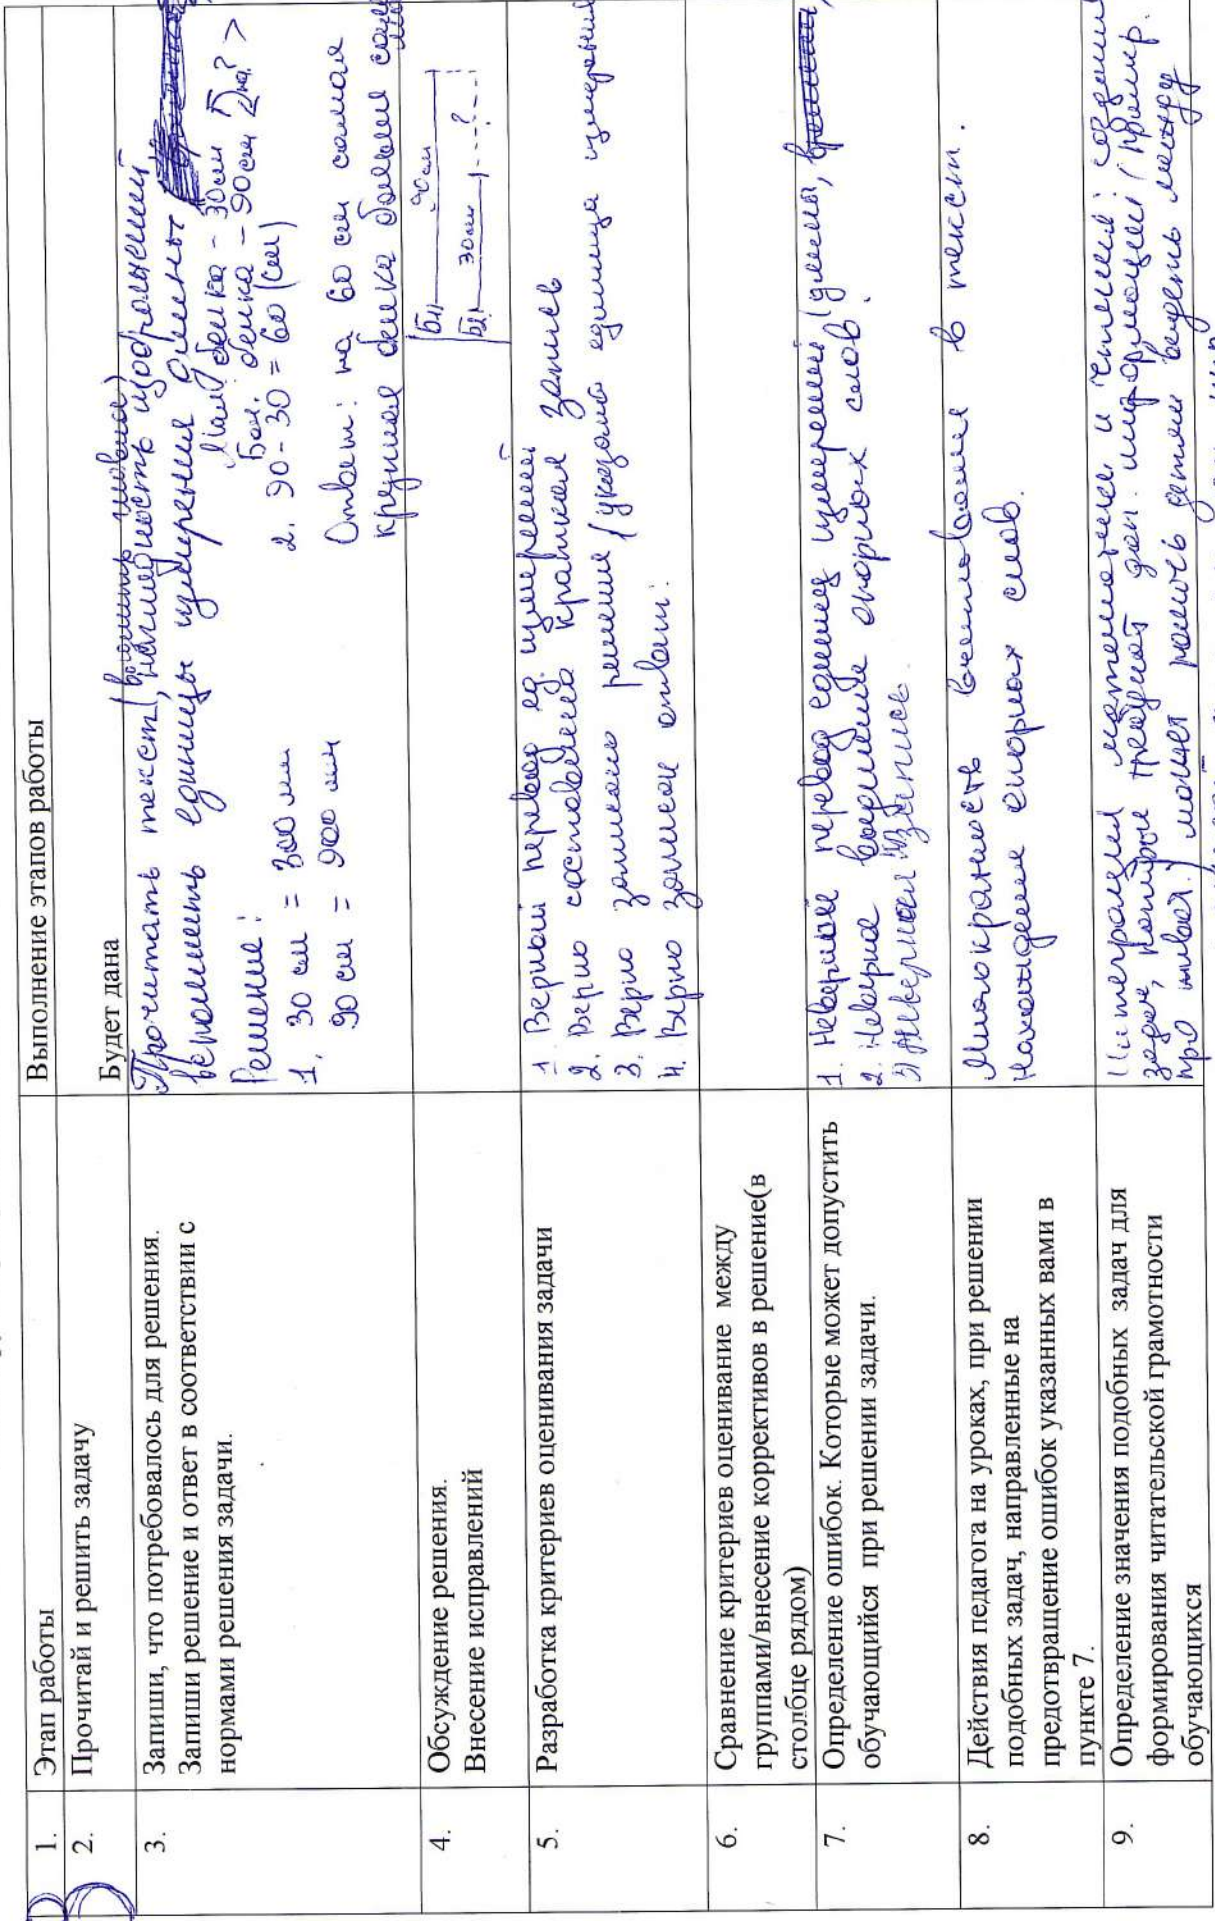 1.
Этап работы
Выполнение этапов работы
2.
Прочитай и решить задачу
Будет дана
3.
Запиши, что потребовалось для решения.
Запиши решение и ответ в соответствии с
нормами решения задачи.
Прочитать текст,
вспомнить единицы измерения длины
Решение:
1. 30 см = 300 мм
90 см = 900 мм
Мал. белка - 30см
Бол. белка - 90см
на ? >
2. 90 - 30 = 60 (см)
Ответ: на 60 см самая
крупная белка больше
Б1 90см
Б2 30см ?
4.
Обсуждение решения.
Внесение исправлений
5.
Разработка критериев оценивания задачи
1. Верный перевод ед. измерений
2. Верно составлена краткая запись
3. Верно записано решение (указана единица измерения
4. Верно записан ответ.
6.
Сравнение критериев оценивание между
группами/внесение коррективов в решение(в
столбце рядом)
7.
Определение ошибок. Которые может допустить
обучающийся при решении задачи.
1. Неверный перевод единиц измерения (длины,
2. Неверное выделение опорных слов.
3) Неверная запись.
8.
Действия педагога на уроках, при решении
подобных задач, направленные на
предотвращение ошибок указанных вами в
пункте 7.
Многократность в текст.
Нахождение опорных слов.
9.
Определение значения подобных задач для
формирования читательской грамотности
обучающихся
Интеграция математики и чтения: создания
задач, которые требуют доп. информации (пример.
про может помочь детям видеть между